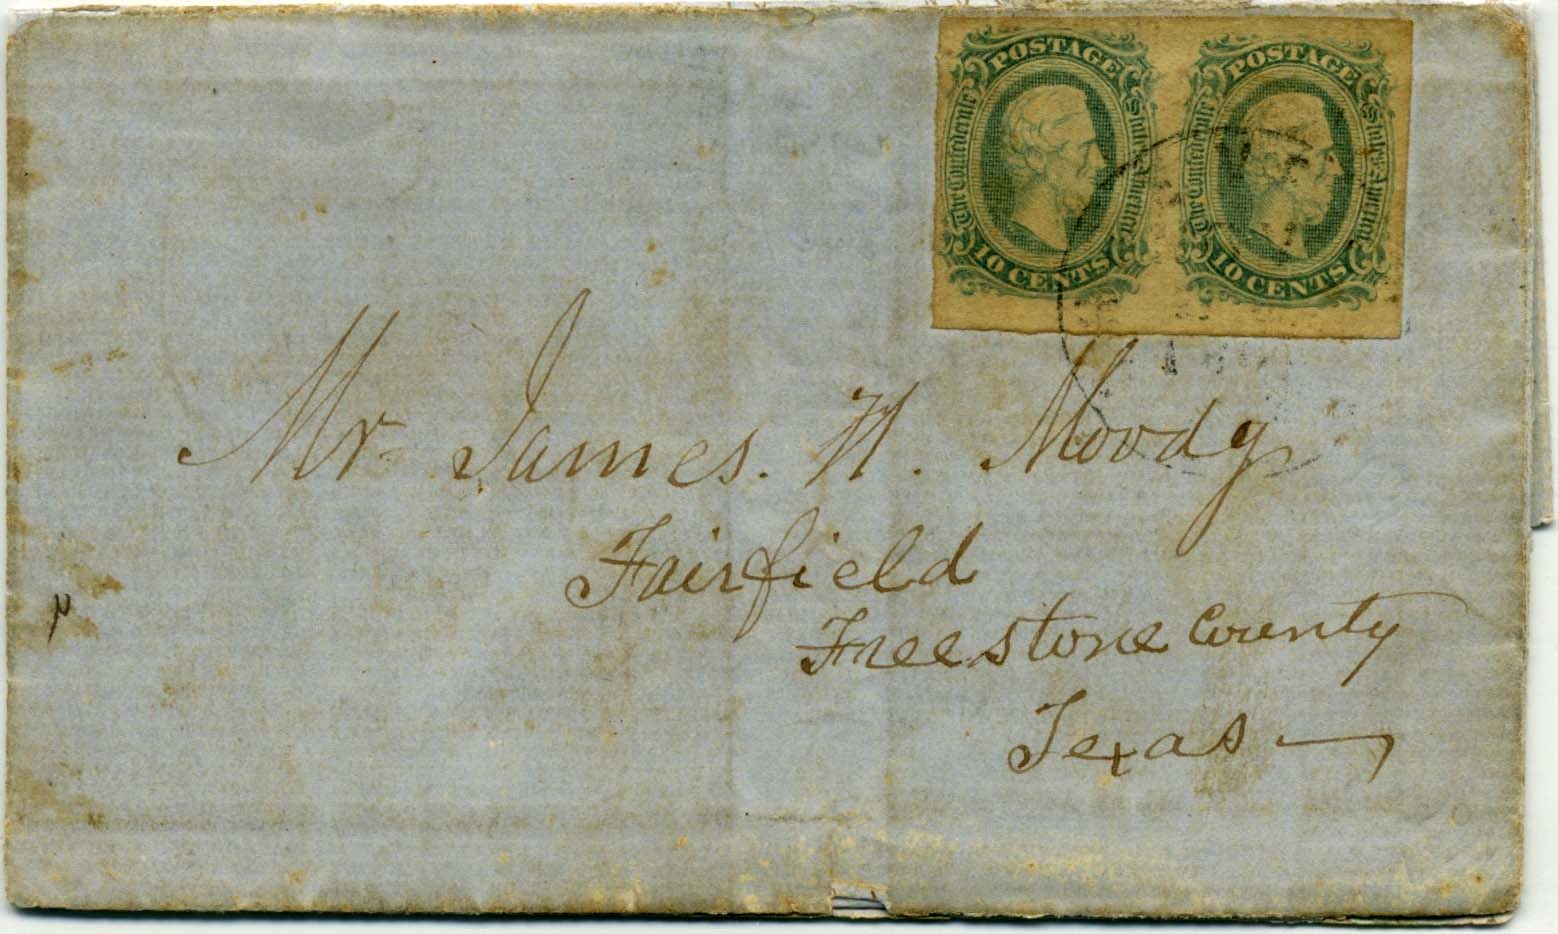 POSTAGE POSTAGE
The Confederate States of America The Confederate States of America
10 CENTS 10 CENTS
Mr. James. H. Moody
Fairfield
Freestone County
Texas